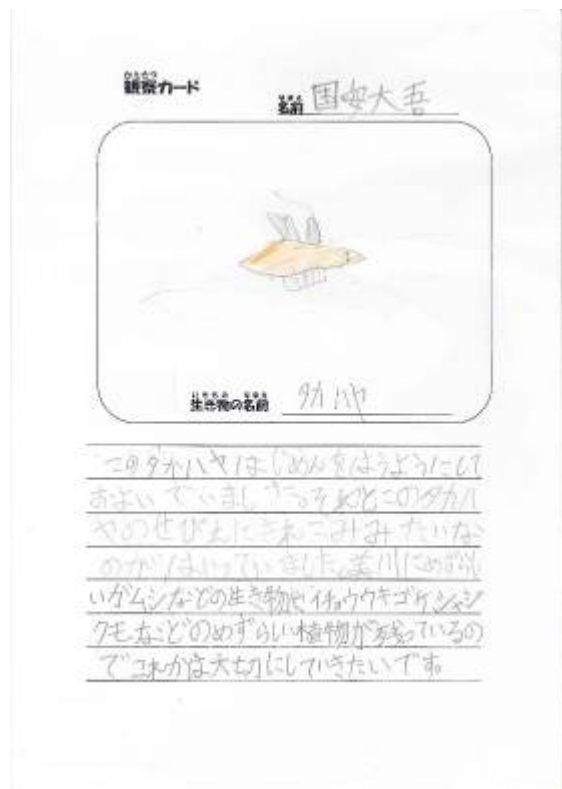 かんさつ
観察カード
なまえ
名前 国安大吾
いきもの なまえ
生き物の名前 タカハヤ
このタカハヤは じめんをはうようにして
およいでいました。そのあとこのタカハ
ヤのせびれにきれこみみたいな
のがはいっていました。美川にめずらし
いゲムシなどの生き物やイチョウウキゴケ、シャジ
クモなどのめずらしい植物が残っているの
でこれからも大切にしていきたいです。